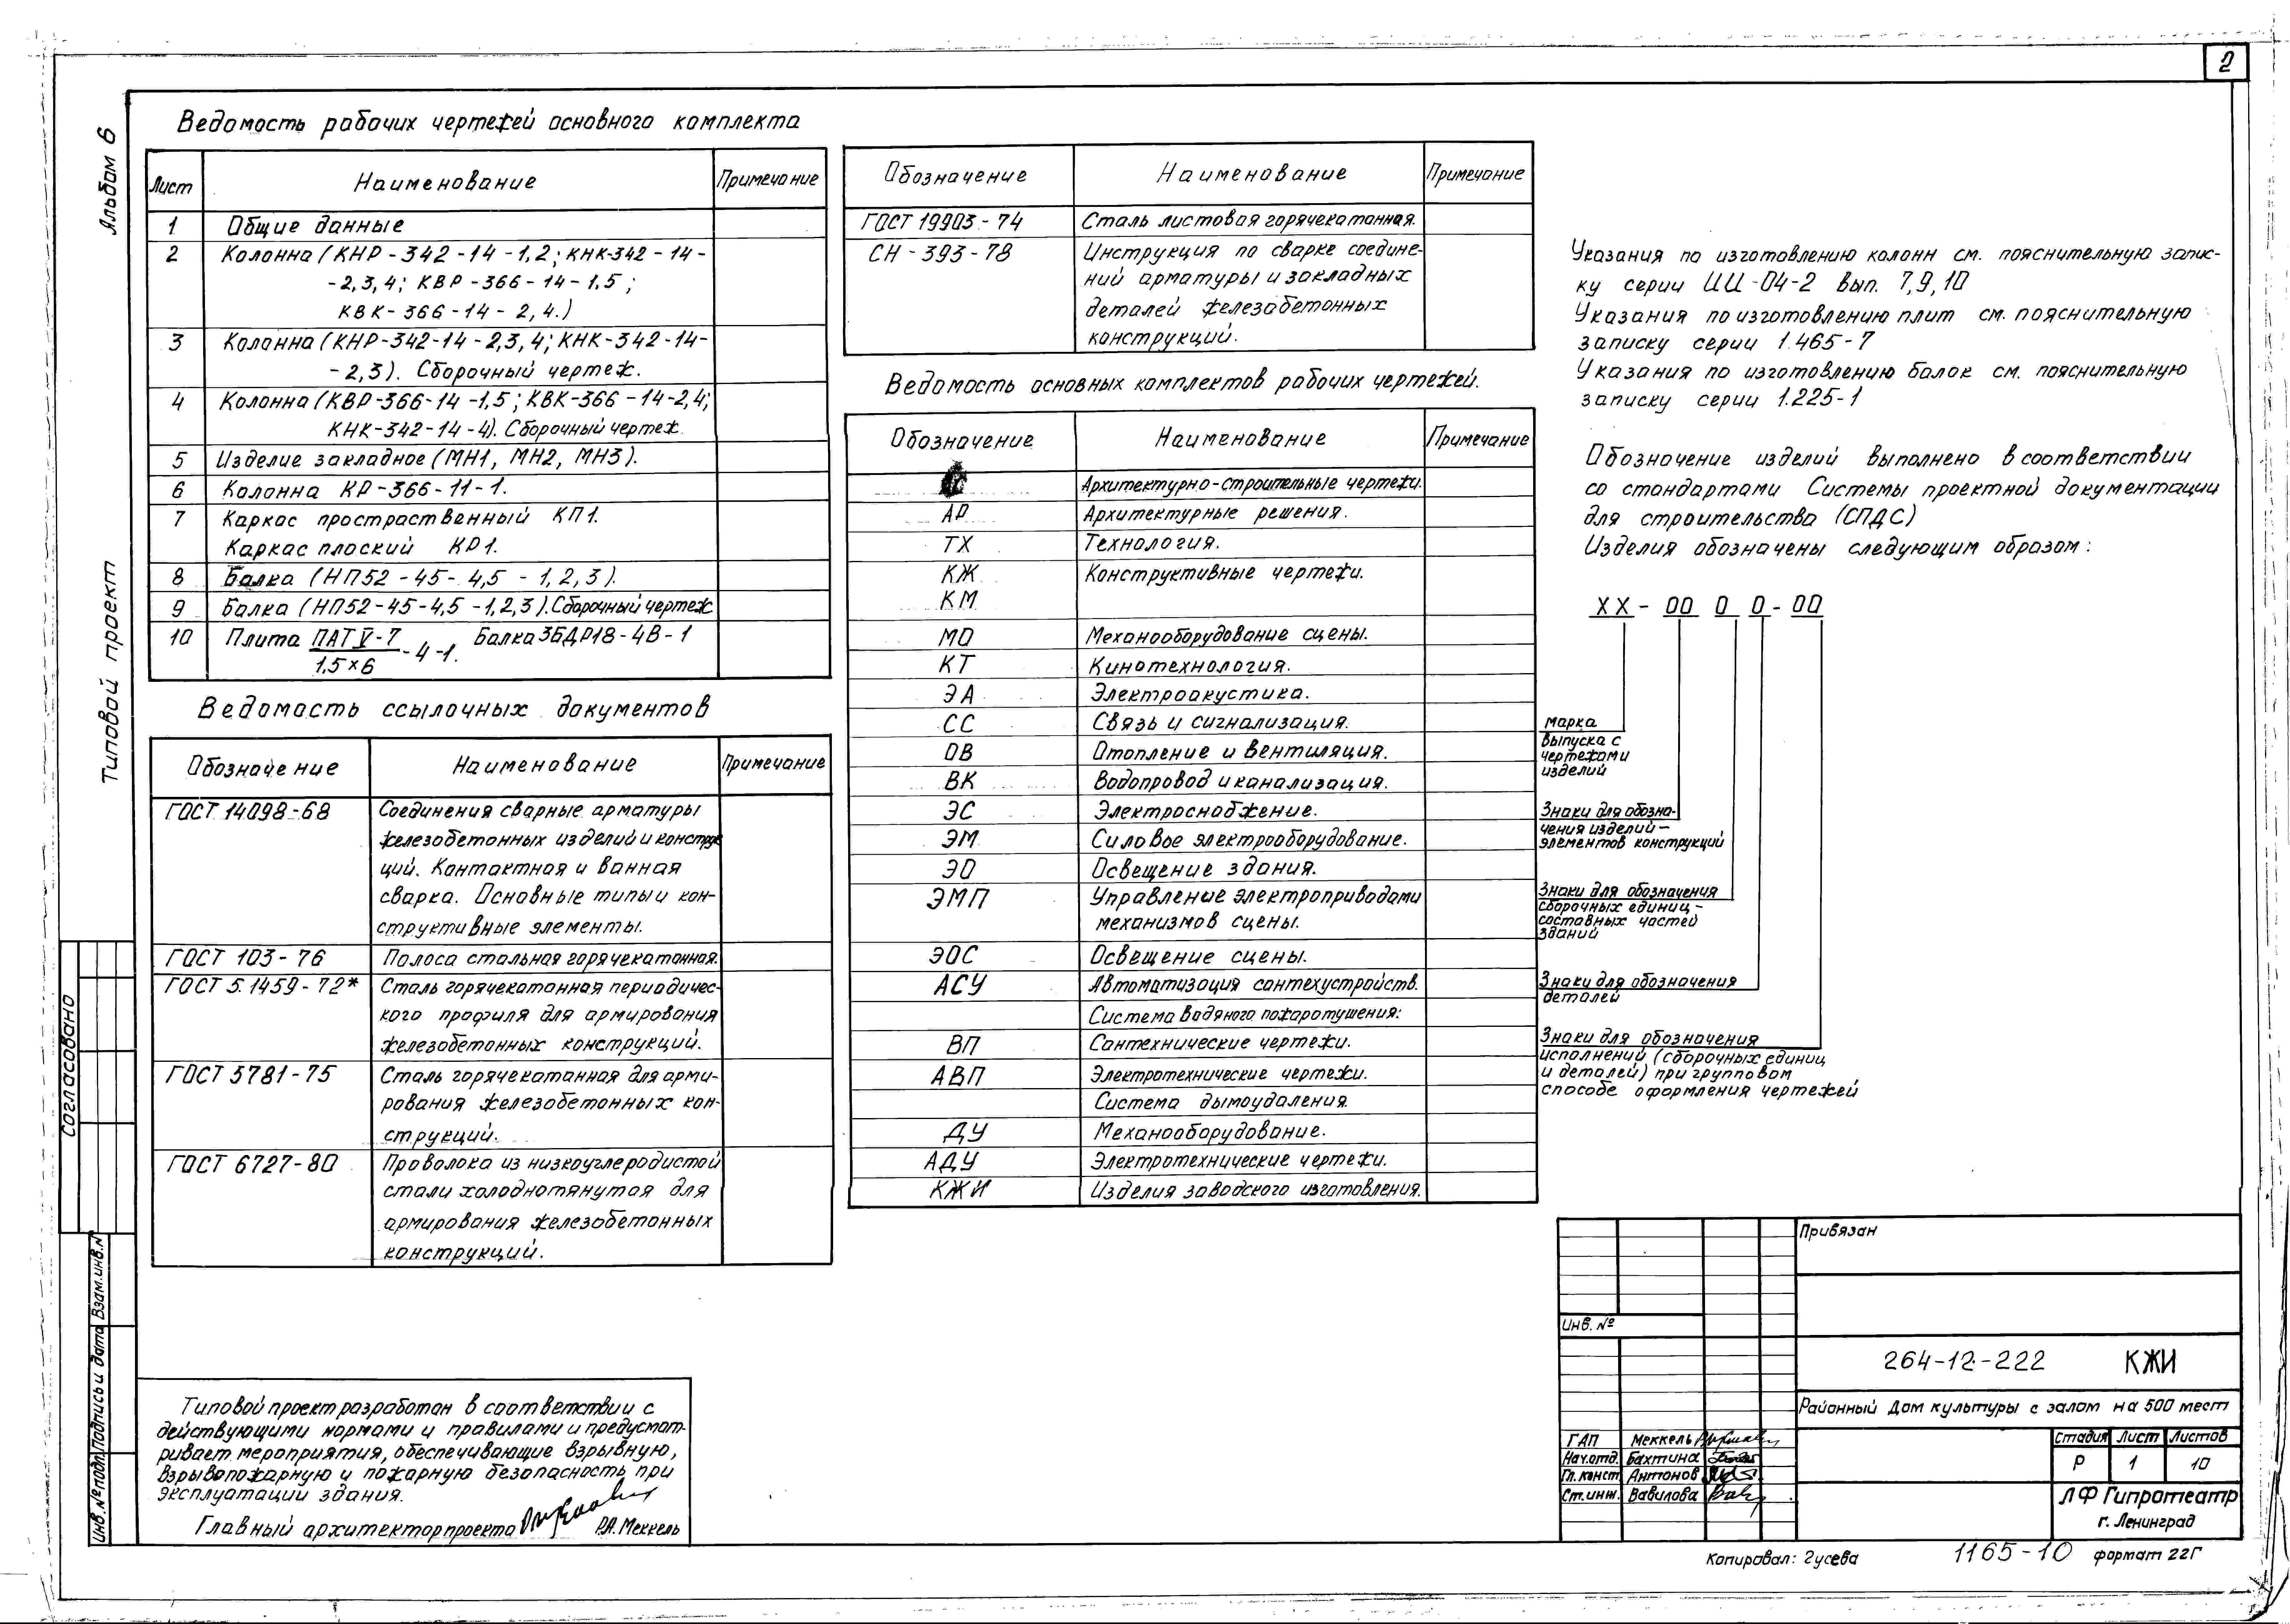 2
Альбом 6
Типовой проект
Согласовано
Взам.инв.N
Подпись и дата
Инв.№ подл.
Ведомость рабочих чертежей основного комплекта
Лист Наименование Примечание
1 Общие данные
2 Колонна (КНР-342-14-1,2; КНК-342-14-
-2,3,4; КВР-366-14-1,5;
КВК-366-14-2,4.)
3 Колонна (КНР-342-14-2,3,4; КНК-342-14-
-2,3). Сборочный чертеж.
4 Колонна (КВР-366-14-1,5; КВК-366-14-2,4;
КНК-342-14-4). Сборочный чертеж.
5 Изделие закладное (МН1, МН2, МН3).
6 Колонна КР-366-11-1.
7 Каркас простраственный КП1.
Каркас плоский КР1.
8 Балка (НП52-45-4,5-1,2,3).
9 Балка (НП52-45-4,5-1,2,3). Сборочный чертеж
10 Плита ПАТV-7 -4-1. Балка 3БДР18-4В-1
1,5×6
Ведомость ссылочных документов
Обозначение Наименование Примечание
ГОСТ 14098-68 Соединения сварные арматуры
железобетонных изделий и конструк
ций. Контактная и ванная
сварка. Основные типы и кон-
структивные элементы.
ГОСТ 103-76 Полоса стальная горячекатанная.
ГОСТ 5.1459-72* Сталь горячекатанная периодичес-
кого профиля для армирования
железобетонных конструкций.
ГОСТ 5781-75 Сталь горячекатанная для арми-
рования железобетонных кон-
струкций.
ГОСТ 6727-80 Проволока из низкоуглеродистой
стали холоднотянутая для
армирования железобетонных
конструкций.
Типовой проект разработан в соответствии с
действующими нормами и правилами и предусмат-
ривает мероприятия, обеспечивающие взрывную,
взрывопожарную и пожарную безопасность при
эксплуатации здания.
Главный архитектор проекта Р.А. Меккель
Обозначение Наименование Примечание
ГОСТ 19903-74 Сталь листовая горячекатанная.
СН-393-78 Инструкция по сварке соедине-
ний арматуры и закладных
деталей железобетонных
конструкций.
Ведомость основных комплектов рабочих чертежей.
Обозначение Наименование Примечание
Архитектурно-строительные чертежи.
АР Архитектурные решения.
ТХ Технология.
КЖ Конструктивные чертежи.
КМ
МО Механооборудование сцены.
КТ Кинотехнология.
ЭА Электроакустика.
СС Связь и сигнализация.
ОВ Отопление и вентиляция.
ВК Водопровод и канализация.
ЭС Электроснабжение.
ЭМ Силовое электрооборудование.
ЭО Освещение здания.
ЭМП Управление электроприводами
механизмов сцены.
ЭОС Освещение сцены.
АСУ Автоматизация сантехустройств.
Система водяного пожаротушения:
ВП Сантехнические чертежи.
АВП Электротехнические чертежи.
Система дымоудаления
ДУ Механооборудование.
АДУ Электротехнические чертежи.
КЖИ Изделия заводского изготовления.
Указания по изготовлению колонн см. пояснительную запис-
ку серии ИИ-04-2 вып. 7,9,10
Указания по изготовлению плит см. пояснительную
записку серии 1.465-7
Указания по изготовлению балок см. пояснительную
записку серии 1.225-1
Обозначение изделий выполнено в соответствии
со стандартами Системы проектной документации
для строительства (СПДС)
Изделия обозначены следующим образом:
ХХ-00 0 0-00
марка
выпуска с
чертежами
изделий
Знаки для обозна-
чения изделий-
элементов конструкций
Знаки для обозначения
сборочных единиц-
составных частей
зданий
Знаки для обозначения
деталей
Знаки для обозначения
исполнений (сборочных единиц
и деталей) при групповом
способе оформления чертежей
Привязан
Инв. №
264-12-222 КЖИ
Районный Дом культуры с залом на 500 мест
ГАП Меккель
Нач.отд. Бахтина
Гл.конст. Антонов
Ст.инж. Вавилова
Стадия Лист Листов
Р 1 10
ЛФ Гипротеатр
г. Ленинград
Копировал: Гусева 1165-10 формат 22Г